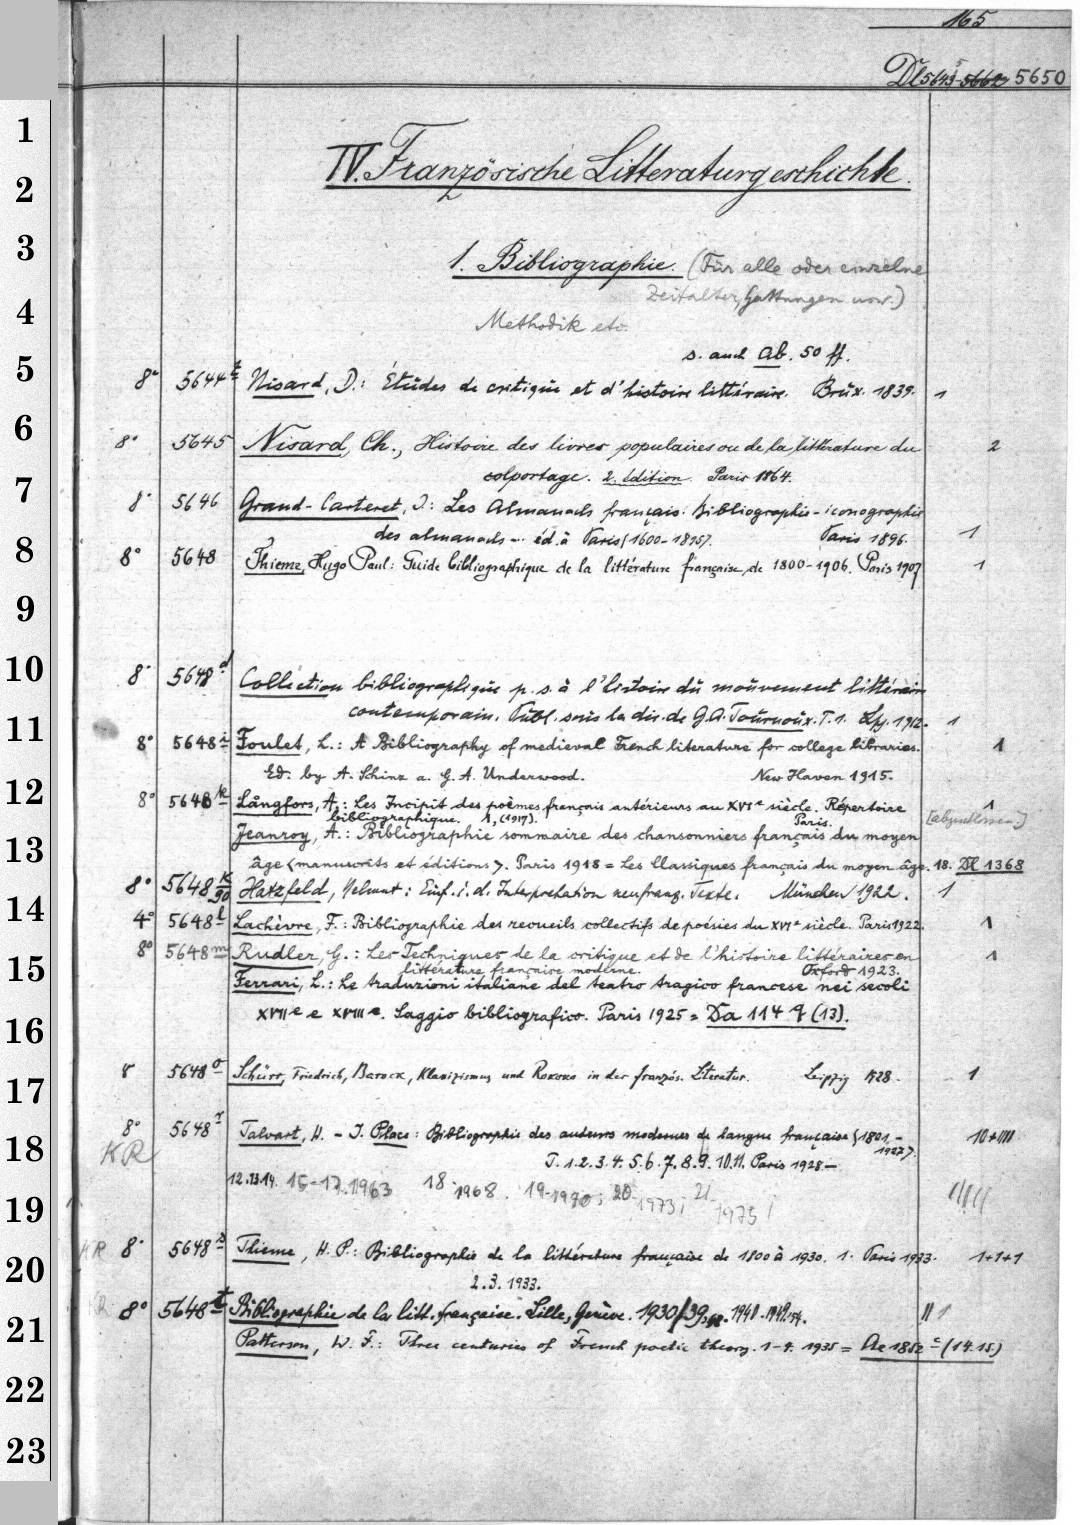 165
Dl 5643-5662 5650
1
2
3
4
5
6
7
8
9
10
11
12
13
14
15
16
17
18
19
20
21
22
23
IV. Französische Litteraturgeschichte.
1. Bibliographie. (Für alle oder einzelne
Zeitalter, Gattungen usw.)
Methodik etc.
s. auch Ab. 50 ff.
8° 5644 t Nisard, D.: Études de critique et d'histoire littéraire. Brüx. 1839. 1
8° 5645 Nisard, Ch., Histoire des livres populaires ou de la littérature du 2
colportage. 2. édition. Paris 1864.
8° 5646 Grand-Carteret, J: Les Almanachs français: Bibliographie-iconographie
des almanachs - éd. à Paris (1600-1895). Paris 1896. 1
8° 5648 Thieme, Hugo Paul: Guide bibliographique de la littérature française de 1800-1906. Paris 1907 1
8° 5648 d Collection bibliographique p. s. à l'histoire du mouvement littérair
contemporain. Publ. sous la dir. de G. A. Tournoux. T. 1. Lpg. 1912. 1
8° 5648 i Foulet, L.: A Bibliography of medieval French literature for college libraries. 1
Ed. by A. Schinz a. G. A. Underwood. New Haven 1915.
8° 5648 k Långfors, A.: Les Incipit des poèmes français antérieurs au XVIe siècle. Répertoire 1
bibliographique. 1, (1917). Paris. [abgeschlossen.]
Jeanroy, A.: Bibliographie sommaire des chansonniers français du moyen
âge <manuscrits et éditions>. Paris 1918 = Les Classiques français du moyen âge. 18. Dl 1368
8° 5648 k/90 Hatzfeld, Helmut: Einf. i. d. Interpretation neufranz. Texte. München 1922. 1
4° 5648 l Lachèvre, F.: Bibliographie des recueils collectifs de poésies du XVIe siècle. Paris 1922. 1
8° 5648 m Rudler, G.: Les Techniques de la critique et de l'histoire littéraires en 1
littérature française moderne. Oxford 1923.
Ferrari, L.: Le traduzioni italiane del teatro tragico francese nei secoli
XVIIe e XVIIIe. Saggio bibliografico. Paris 1925 = Da 114 q (13).
8 5648 o Schürr, Friedrich, Barock, Klassizismus und Rokoko in der französ. Literatur. Leipzig 1928. 1
8° 5648 r Talvart, H. - J. Place: Bibliographie des auteurs modernes de langue française <1801- 10+IIII
1927>.
KR
T. 1. 2. 3. 4. 5. 6. 7. 8. 9. 10. 11. Paris 1928-
12. 13. 14. 15-17. 1963 18 1968. 19-1970; 20 1973; 21 1975
KR 8° 5648 s Thieme, H. P.: Bibliographie de la littérature française de 1800 à 1930. 1. Paris 1933. 1+1+1
2. 3. 1933.
KR 8° 5648 t Bibliographie de la litt. française. Lille, Genève. 1930/39. 1940-1949. II 1
Patterson, W. F.: Three centuries of French poetic theory. 1-4. 1935 = Ae 1852 c (14. 15)